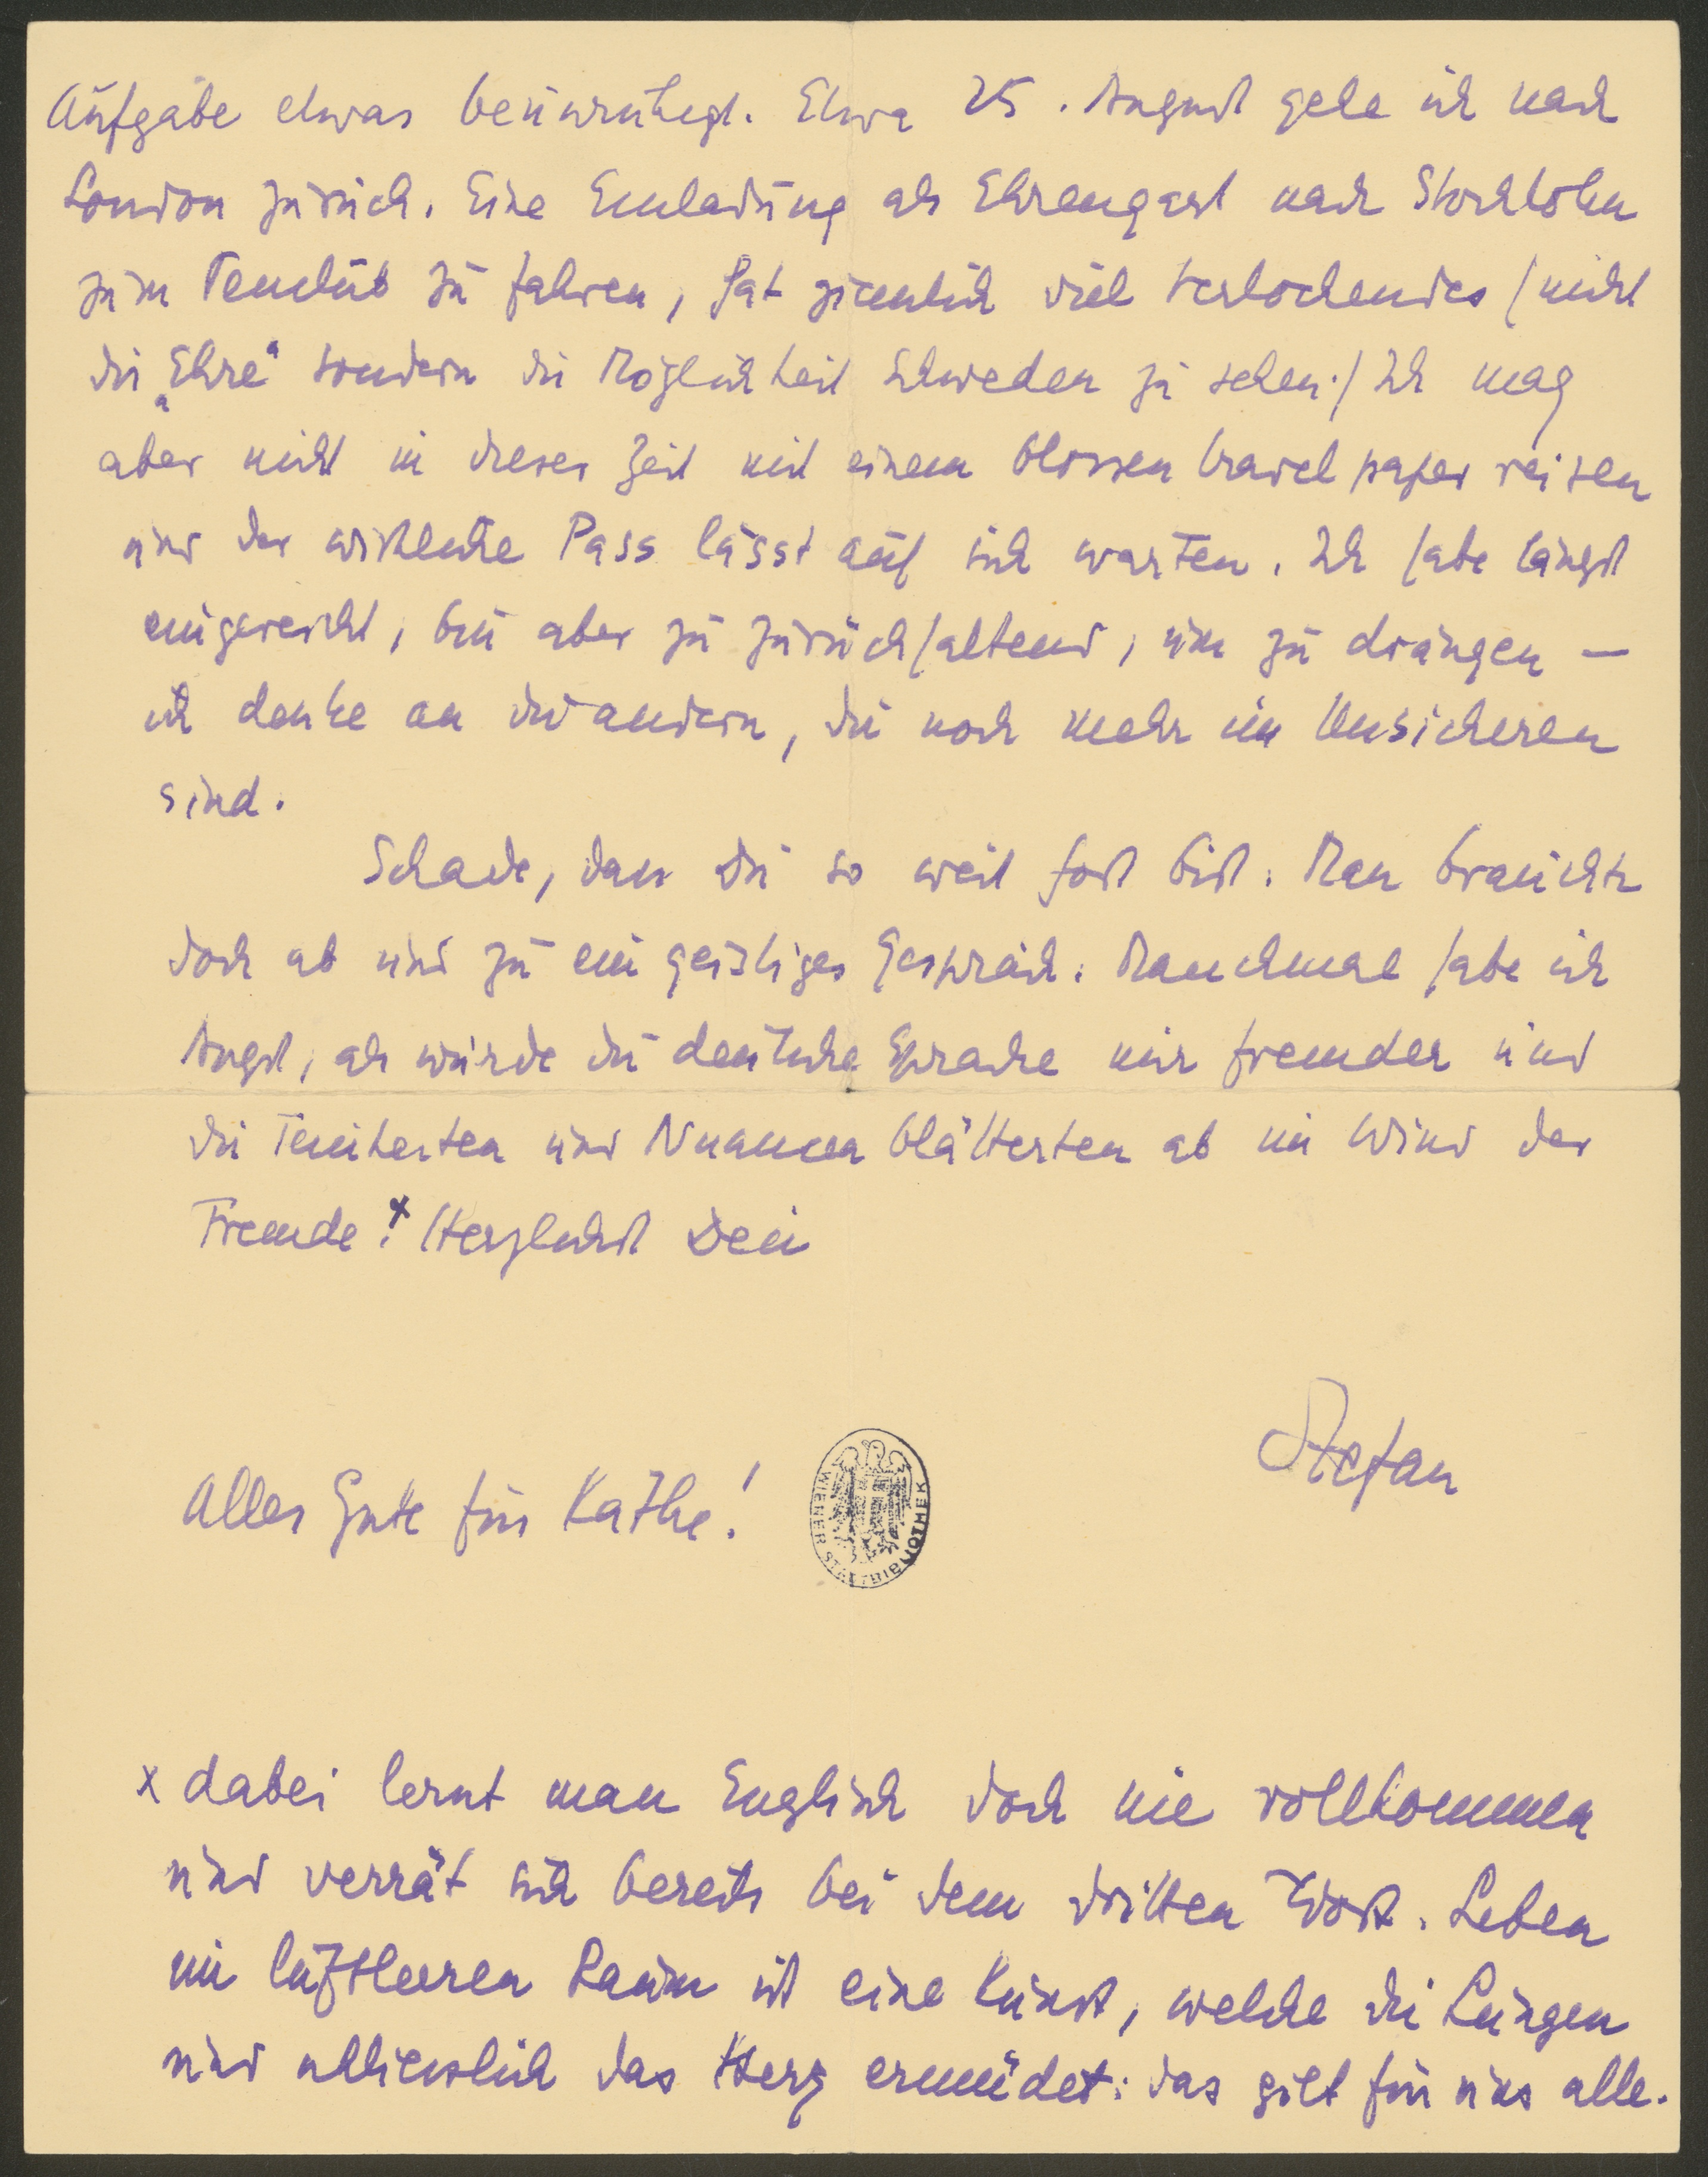 Aufgabe etwas beunruhigt. Etwa 25. August gehe ich nach
London zurück. Eine Einladung als Ehrengast nach Stockholm
zum Penclub zu fahren, hat ziemlich viel verlockendes (nicht
die „Ehre“ sondern die Möglichkeit Schweden zu sehen.) Ich mag
aber nicht in dieser Zeit mit einem blossen travel paper reisen
und der wirkliche Pass lässt auf sich warten. Ich habe längst
eingereicht, bin aber zu zurückhaltend, um zu drängen –
ich denke an die andern, die noch mehr im Unsicheren
sind.
Schade, dass Du so weit fort bist. Man brauchte
doch ab und zu ein geistiges Gespräch. Manchmal habe ich
Angst, als würde die deutsche Sprache mir fremder und
die Feinheiten und Nuancen blätterten ab im Wind der
Fremde.x Herzlichst Dein
Stefan
Alles Gute für Käthe!
WIENER STADTBIBLIOTHEK
x dabei lernt man Englisch doch nie vollkommen
und verrät sich bereits bei dem dritten Wort. Leben
im luftleeren Raum ist eine Kunst, welche die Lungen
und schliesslich das Herz ermüdet: das gilt für uns alle.